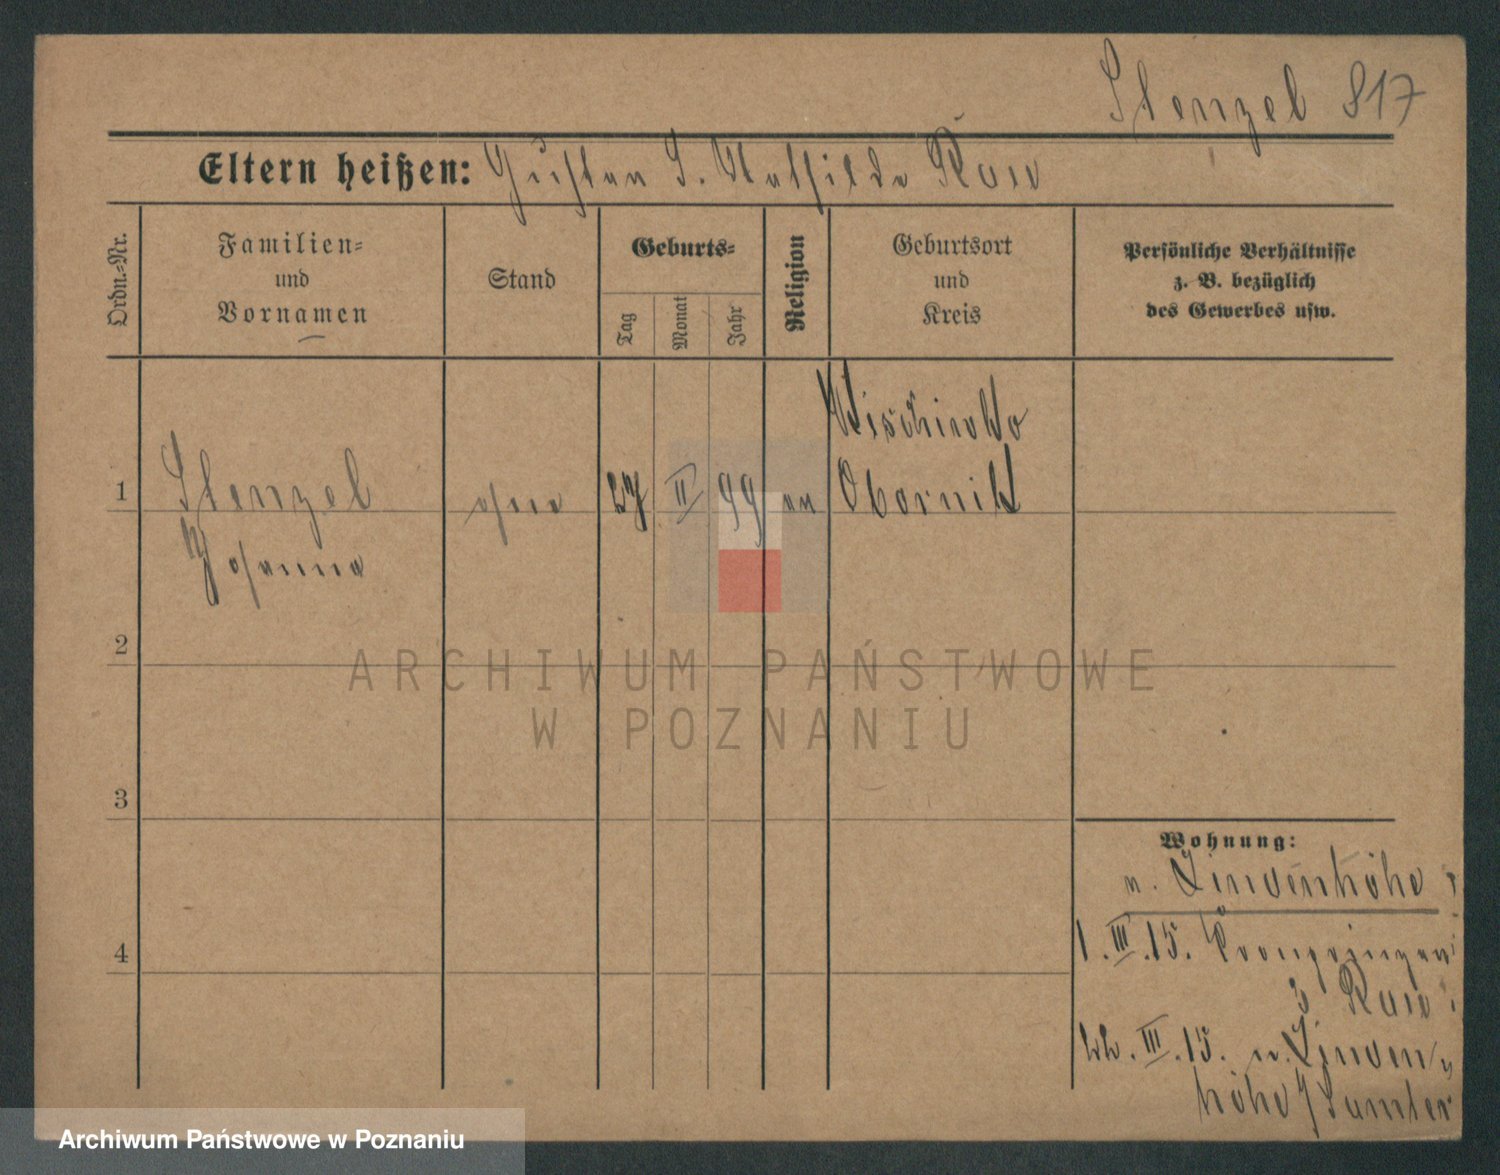 Stenzel 817
Eltern heißen: Gustav S. Mathilde Rau
Ordn.-Nr.
Familien-
und
Vornamen
Stand
Geburts-
Tag
Monat
Jahr
Religion
Geburtsort
und
Kreis
Persönliche Verhältnisse
z. B. bezüglich
des Gewerbes usw.
1
Stenzel
Johanna
ohne
27
II
99
ev
Obornik
2
3
4
Wohnung:
n. Lindenhöhe
1. III. 15. Kronprinzen
3 Rau
22. III. 15. n. Linden
höhe / Samter
ARCHIWUM PAŃSTWOWE
W POZNANIU
Archiwum Państwowe w Poznaniu